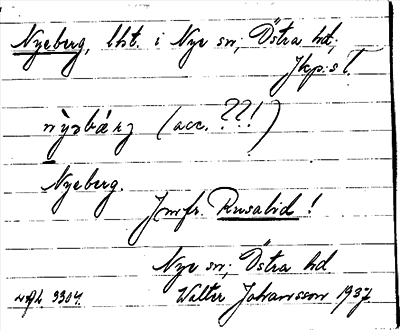 Nyeberg, lht. i Nye sn, Östra hd,
Jkp:s l.
nỳəbærj (acc. ??!)
Nyeberg.
Jmfr. Rusabid !
Nye sn, Östra hd
Walter Johansson 1937.